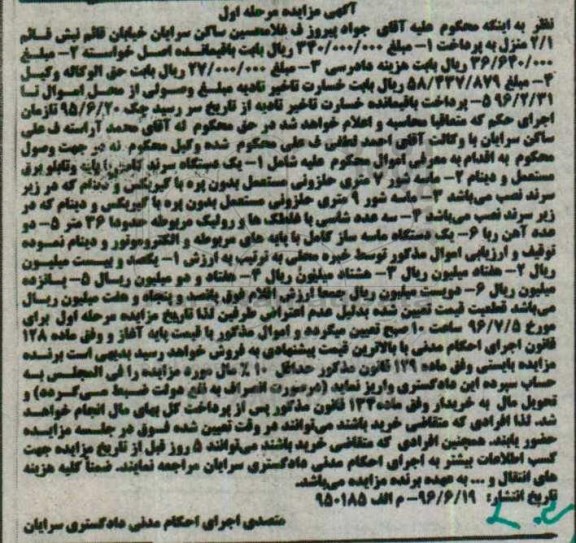 آگهی مزایده مرحله اول
نظر به اینکه محکوم علیه آقای جواد پیروز ف غلامحسین ساکن سرایان خیابان قائم نبش قائم
۲/۱ منزل به پرداخت ۱- مبلغ ۳۴۰/۰۰۰/۰۰۰ ریال بابت باقیمانده اصل خواسته ۲- مبلغ
۳۶/۶۴۰/۰۰۰ ریال بابت هزینه دادرسی ۳- مبلغ ۲۷/۰۰۰/۰۰۰ ریال بابت حق الوکاله وکیل
۴- مبلغ ۵۸/۴۳۷/۸۷۹ ریال بابت خسارت تاخیر تادیه مبلغ وصولی از محل اموال تا
۹۶/۲/۳۱ ۵- پرداخت باقیمانده خسارت تاخیر تادیه از تاریخ سر رسید چک ۹۵/۶/۲۰ تا زمان
اجرای حکم که متعاقبا محاسبه و اعلام خواهد شد در حق محکوم له آقای محمد آراسته ف علی
ساکن سرایان با وکالت آقای احمد لطفی ف علی محکوم شده وکیل محکوم له در جهت وصول
محکوم به اقدام به معرفی اموال محکوم علیه شامل ۱- یک دستگاه سرند کامل با پایه و تابلو برق
مستعمل و دینام ۲- ماسه شور ۷ متری حلزونی مستعمل بدون پره با گیربکس و دینام که در زیر
سرند نصب می‌باشد ۳- ماسه شور ۹ متری حلزونی مستعمل بدون پره با گیربکس و دینام که در
زیر سرند نصب می‌باشد ۴- سه عدد شاسی با غلطک ها و رولیک مربوطه حدودا ۳۶ متر ۵- دو
عدد آهن ربا ۶- یک دستگاه ماسه ساز کامل با پایه های مربوطه و الکتروموتور و دینام نموده
توقیف و ارزیابی اموال مذکور توسط خبره محلی به ترتیب به ارزش ۱- یکصد و بیست میلیون
ریال ۲- هفتاد میلیون ریال ۳- هشتاد میلیون ریال ۴- هفتاد و دو میلیون ریال ۵- پانزده
میلیون ریال ۶- دویست میلیون ریال جمعا ارزش اقلام فوق پانصد و پنجاه و هفت میلیون ریال
می‌باشد قطعیت قیمت تعیین شده بدلیل عدم اعتراض طرفین لذا تاریخ مزایده مرحله اول برای
مورخ ۹۶/۷/۵ ساعت ۱۰ صبح تعیین میگردد و اموال مذکور با قیمت پایه آغاز و وفق ماده ۱۲۸
قانون اجرای احکام مدنی با بالاترین قیمت پیشنهادی به فروش خواهد رسید بدیهی است برنده
مزایده بایستی وفق ماده ۱۲۹ قانون مذکور حداقل ۱۰٪ مال مورد مزایده را فی المجلس به
حساب سپرده این دادگستری واریز نماید (درصورت انصراف به نفع دولت ضبط می‌گردد) و
تحویل مال به خریدار وفق ماده ۱۳۴ قانون مذکور پس از پرداخت کل بهای مال انجام خواهد
شد. لذا افرادی که متقاضی خرید باشند می‌توانند در وقت تعیین شده فوق در جلسه مزایده
حضور یابند. همچنین افرادی که متقاضی خرید باشند می‌توانند ۵ روز قبل از تاریخ مزایده جهت
کسب اطلاعات بیشتر به اجرای احکام مدنی دادگستری سرایان مراجعه نمایند. ضمنا کلیه هزینه
های انتقال و ... به عهده برنده مزایده می‌باشد.
تاریخ انتشار: ۹۶/۶/۱۹- م الف ۹۵۰۱۸۵
متصدی اجرای احکام مدنی دادگستری سرایان